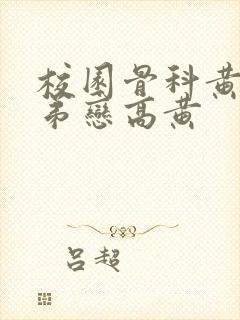 校园骨科黄
弟恋高黄
吕超